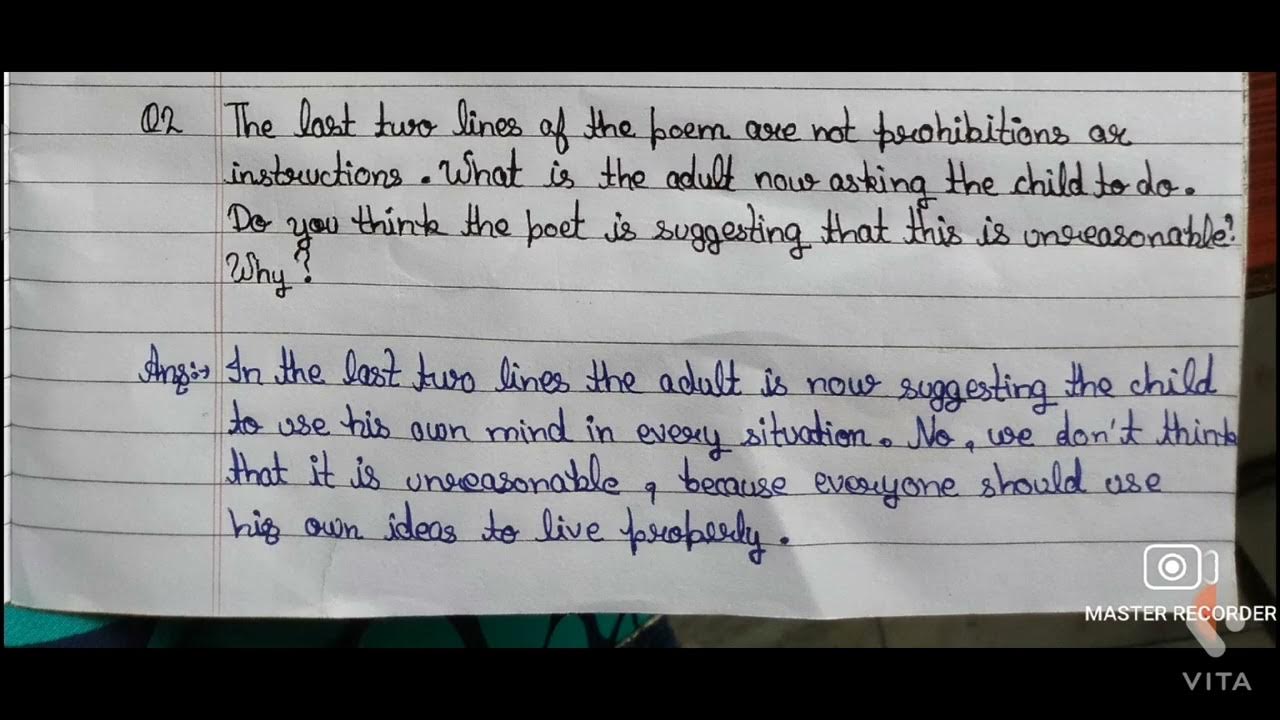 Q2 The last two lines of the poem are not prohibitions or
instructions. What is the adult now asking the child to do.
Do you think the poet is suggesting that this is unreasonable?
Why?
Ans:→ In the last two lines the adult is now suggesting the child
to use his own mind in every situation. No, we don't think
that it is unreasonable, because everyone should use
his own ideas to live properly.
MASTER RECORDER
VITA